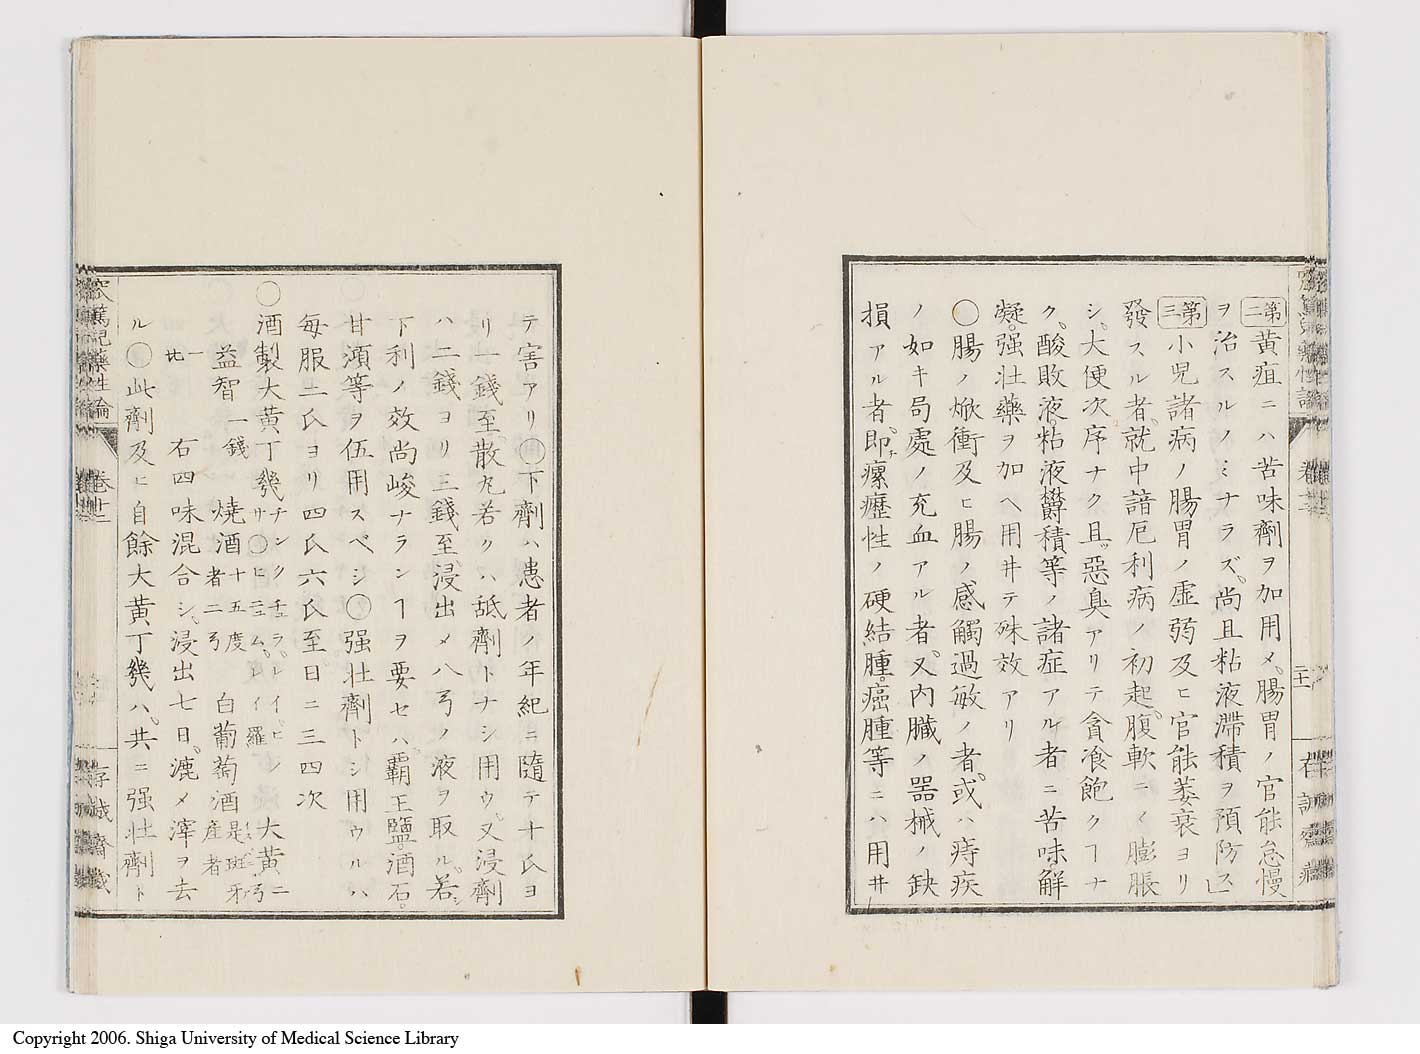 第二黄疸ニハ苦味劑ヲ加用メ腸胃ノ官能怠慢
ヲ治スルノミナラズ尚且粘液滞積ヲ預防ス
第三小児諸病ノ腸胃ノ虚弱及ヒ官能萎衰ヨリ
發スル者就中諳厄利病ノ初起腹軟ニ〆膨脹
シ大便次序ナク且惡臭アリテ貪飡飽クヿナ
ク酸敗液粘液欝積等ノ諸症アル者ニ苦味解
凝强壮藥ヲ加ヘ用井テ殊效アリ
〇腸ノ焮衝及ヒ腸ノ感觸過敏ノ者或ハ痔疾
ノ如キ局處ノ充血アル者又内臓ノ器械ノ缺
損アル者即チ瘰癧性ノ硬結腫癌腫等ニハ用井
テ害アリ〇下劑ハ患者ノ年紀ニ隨テ十氏ヨ
リ一錢至散丸若クハ舐劑トナシ用ウ又浸劑
ハ二錢ヨリ三錢至浸出メ八弓ノ液ヲ取ル若シ
下利ノ效尚峻ナランヿヲ要セハ覇王鹽酒石
甘湏等ヲ伍用スベシ〇强壮劑トシ用ウルハ
毎服二氏ヨリ四氏六氏至日ニ三四次
〇酒製大黄丁幾 大黄二弓
益智一錢 燒酒十五度者二弓 白葡萄酒是班牙産者
一比 右四味混合シ浸出七日漉メ滓ヲ去
ル〇此劑及ヒ自餘大黄丁幾ハ共ニ强壮劑ト
窊篤児藥性論 卷廿一
存誠齋藏
二十一
Copyright 2006. Shiga University of Medical Science Library